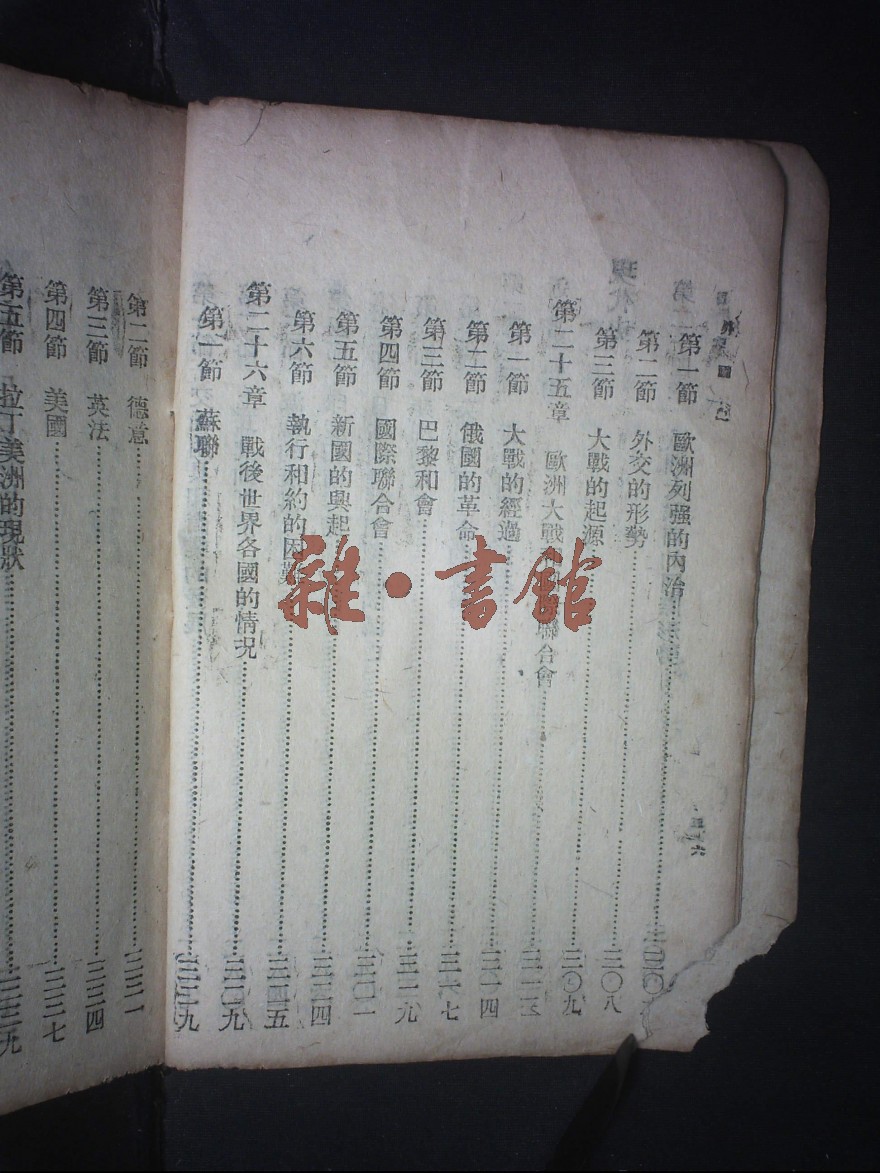 第一節 歐洲列强的內治
第二節 外交的形勢
第三節 大戰的起源 三〇八
第二十五章 歐洲大戰 聯合會 三〇九
第一節 大戰的經過
第二節 俄國的革命 三一四
第三節 巴黎和會
第四節 國際聯合會
第五節 新國的興起
第六節 執行和約的困難
第二十六章 戰後世界各國的情况
第一節 蘇聯
第二節 德意
第三節 英法 三三四
第四節 美國 三三七
第五節 拉丁美洲的現狀 三三九
雜·書館